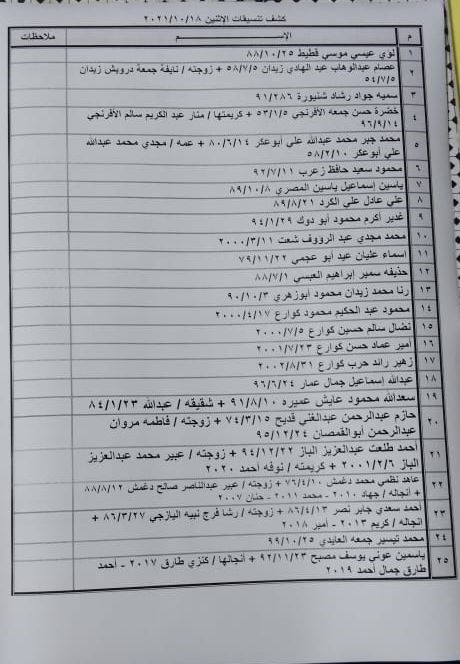 كشف تنسيقات الاثنين ٢٠٢١/١٠/١٨
م الإســـم ملاحظات
١ لؤي عيسي موسي قطيط ٨٨/١٠/٢٥
٢ عصام عبدالوهاب عبد الهادي زيدان ٥٨/٧/٥ + زوجته / نايفة جمعة درويش زيدان
٥٤/٧/٥
٣ سمية جواد رشاد شنيورة ٩١/٢٨٦
٤ خضرة حسن جمعه الإفرنجي ٥٣/١/٥ + كريمتها / منار عبد الكريم سالم الإفرنجي
٩٦/٩/١٤
٥ محمد جبر محمد عبدالله علي ابو عسكر ٨٠/٦/١٤ + عمه / محمد محمد عبدالله
علي ابو عسكر ٥٨/٢/١٠
٦ محمود سعيد حافظ ٩٢/٧/١١
٧ ياسين اسماعيل ياسين المصري ٨٩/١٠/٨
٨ علي عادل علي الكرد ٨٩/٨/٢١
٩ غدير أكرم محمود أبو دوح ٩٤/١/٢٩
١٠ محمد مجدي عبد الرؤوف شعت ٢٠٠٠/٣/١١
١١ اسماء عليان عبد أبو عجمي ٧٩/١١/٢٢
١٢ حذيفه سمير ابراهيم العبسي ٨٨/٧/١
١٣ رنا محمد زيدان محمود ابوزهري ٩٠/١٠/٣
١٤ محمود عبد الحكيم محمود كوارع ٢٠٠٠/٤/١٧
١٥ نضال سالم حسين كوارع ٢٠٠٠/٧/٥
١٦ أمير عماد حسن كوارع ٢٠٠١/٧/٢٣
١٧ زهير رائد حرب كوارع ٢٠٠٢/٨/٣١
١٨ عبدالله اسماعيل جمال عامر ٩٦/٦/٢٤
١٩ سعدالله محمود عايش عميره ٩١/٨/١٠ + شقيقه / عبدالله ٨٤/١/٢٣
٢٠ حازم عبدالرحمن عبدالغني قديح ٧٤/٣/١٥ + زوجته / فاطمه مروان
عبدالرحمن ابوالقمصان ٩٥/١٢/٢٤
٢١ احمد طلعت عبدالعزيز الباز ٩٤/١٢/٢٢ + زوجته / عبير محمد عبدالعزيز
الباز ٢٠٠١/٢/٦ + كريمته / نوفه أحمد ٢٠٢٠
٢٢ عاهد نظمي محمد دغمش ٧٦/٤/١٠ + زوجته / عبير عبدالناصر صالح دغمش ٨٨/٨/١٢
+ أنجاله / جهاد ٢٠١٠ - محمد ٢٠١١ - حنان ٢٠٠٧
٢٣ أحمد سعدي جابر نصر ٨٦/٤/١٣ + زوجته / رشا فرج نبيه اليازجي ٨٦/٣/٢٧ +
أنجاله / كريم ٢٠١٣ - أمير ٢٠١٨
٢٤ محمد تيسير جمعه العايدي ٩٩/١٠/٢٥
٢٥ ياسمين عوني يوسف مصبح ٩٢/١١/٢٣ + أنجالها / كنزي طارق ٢٠١٧ - أحمد
طارق جمال أحمد ٢٠١٩